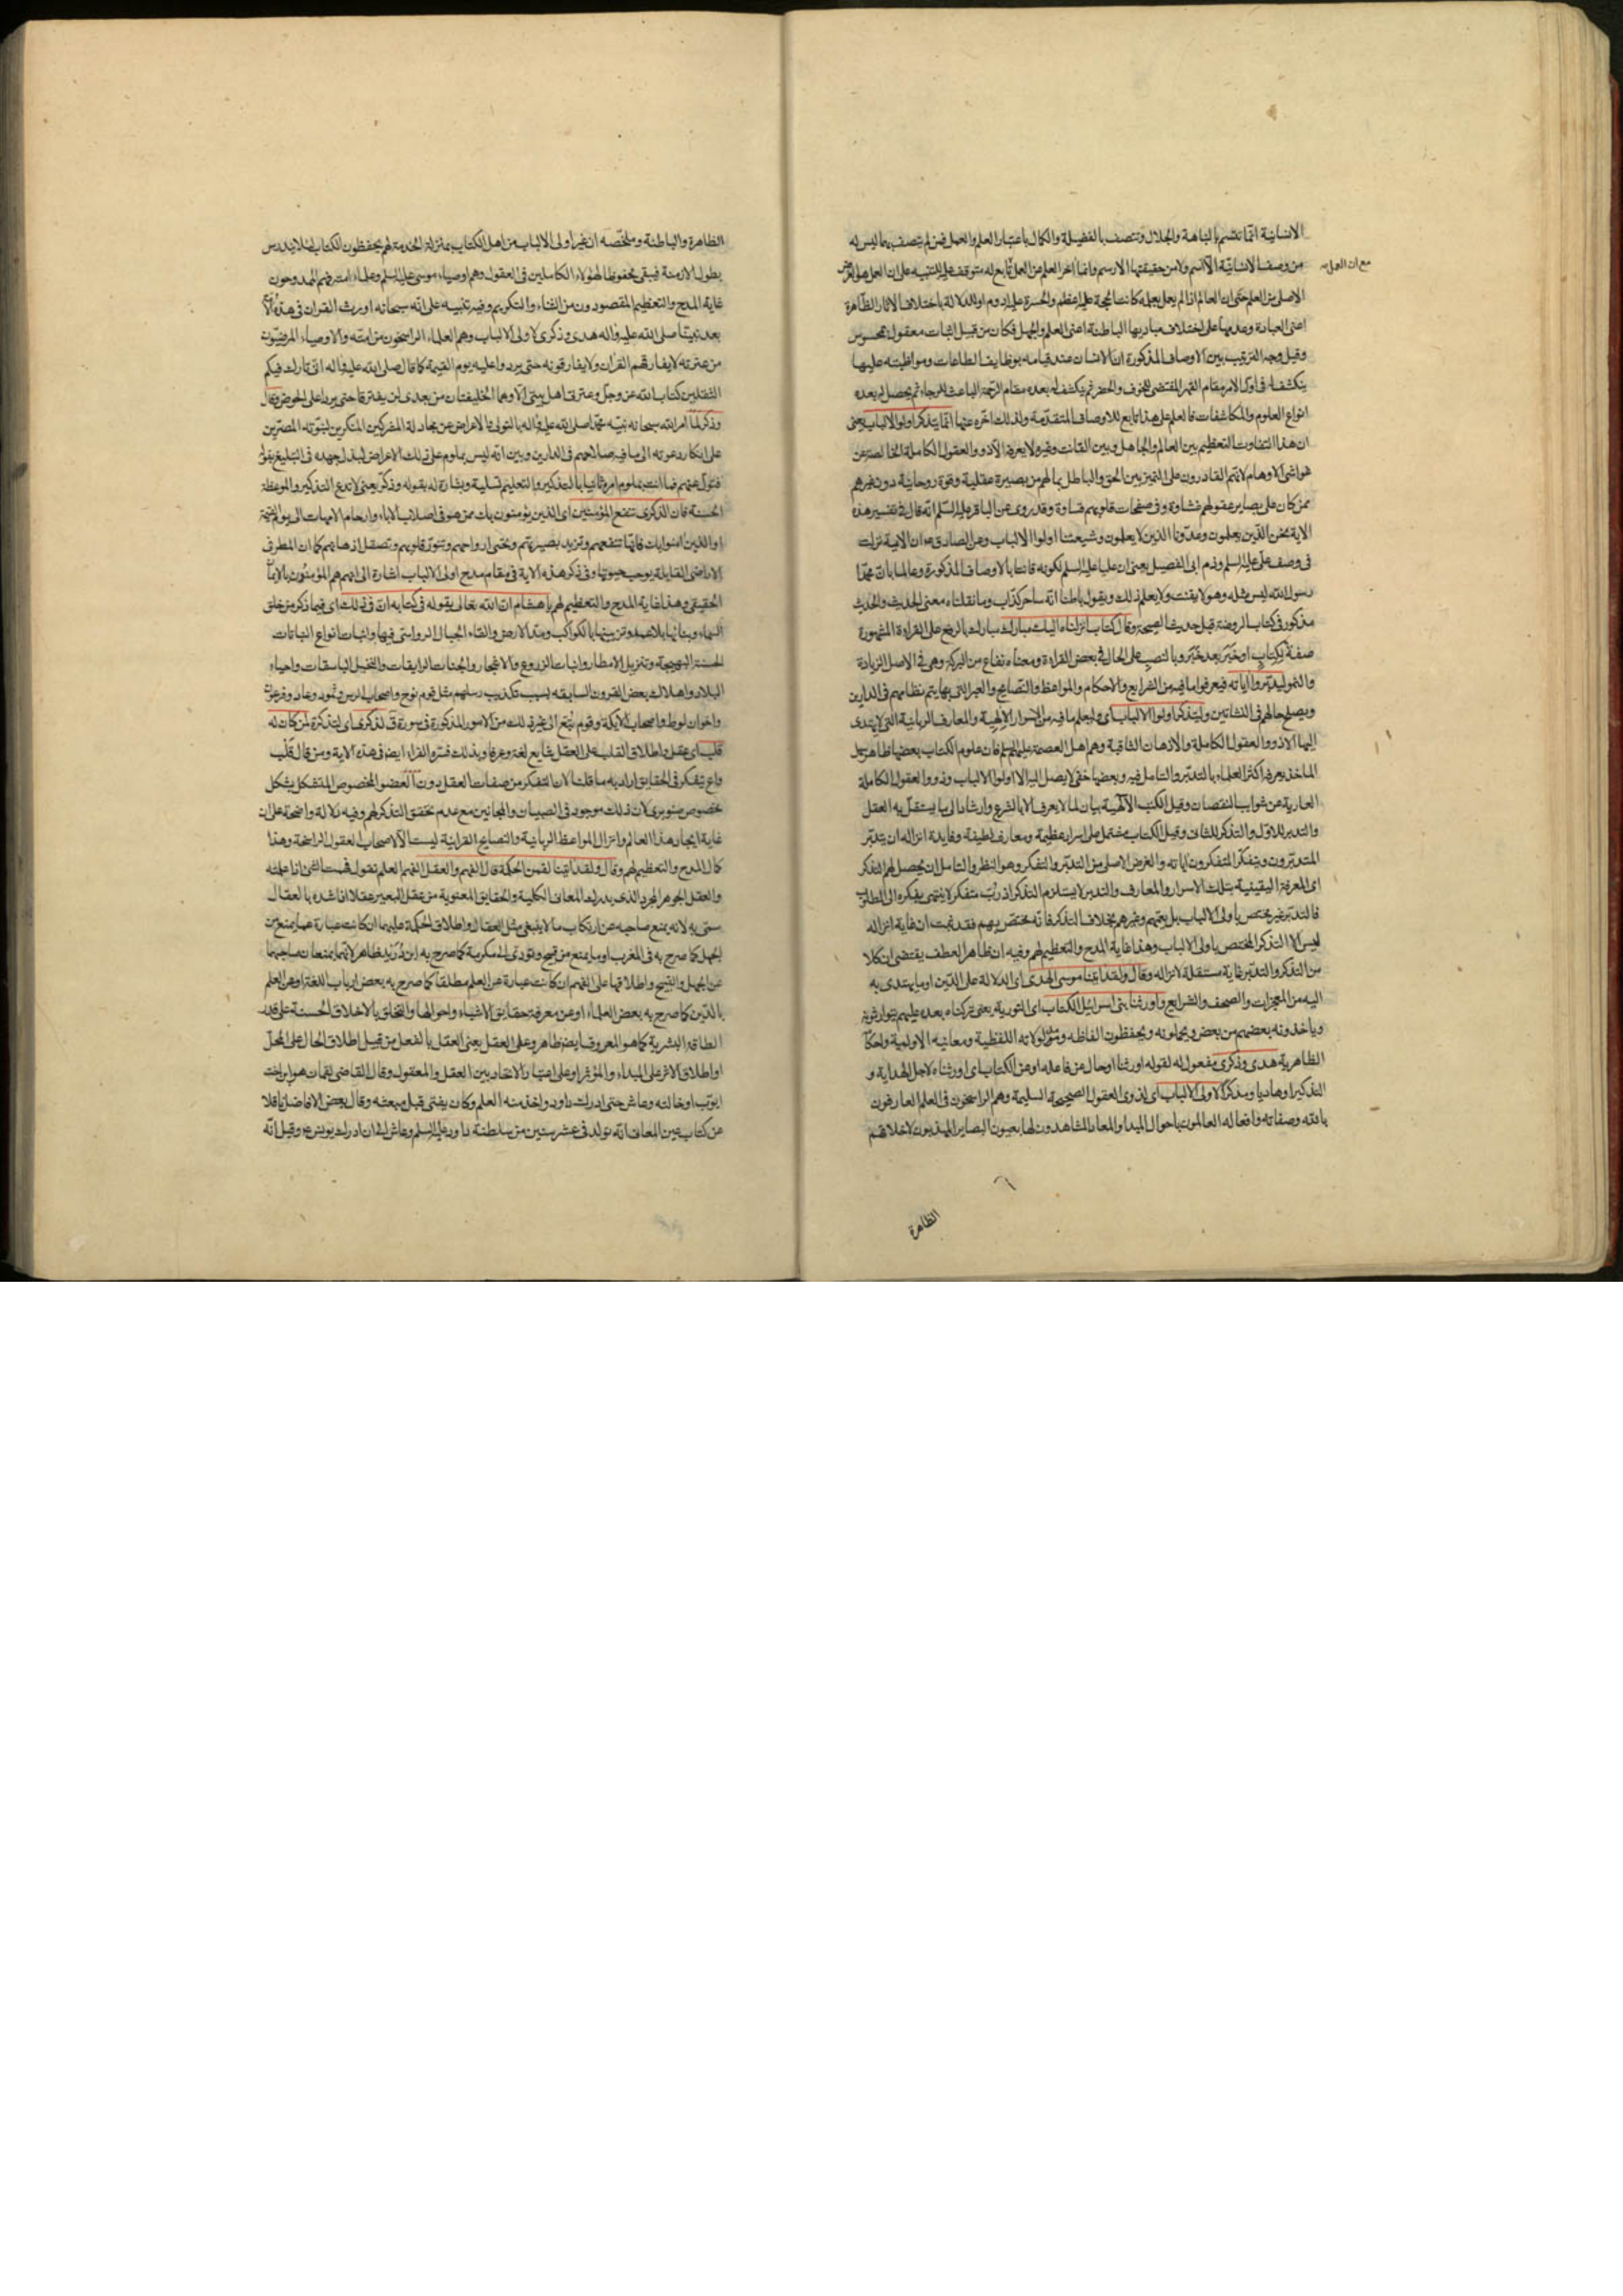 الانسانية انما تتسم بالنباهة والجلال وتتصف بالفضيلة والكمال باعتبار العلم والعمل فمن لم يتصف بهما ليس له
من وصف الانسانية الا الاسم ولا من حقيقتها الا الرسم وانما اخر العلم عن العمل
مع ان العمل
الاصلى من العلم حتى ان العالم اذا لم يعمل بعلمه كانت الحجة عليه اعظم والحسرة عليه ادوم او للدلالة باختلاف الاثار الظاهرة
اعنى العبادة وعدمها على اختلاف مباديها الباطنة اعنى العلم والجهل فكان من قبيل اثبات معقول بمحسوس
وقيل وجه الترتيب بين الاوصاف المذكورة ان الانسان عند قيامه بوظايف الطاعات ومواظبته عليها
ينكشف له فى اول الامر مقام القهر المقتضى للخوف والحضر ثم ينكشف له بعده مقام الرحمة الباعث للرجاء ثم يحصل له بعده
انواع العلوم والمكاشفات فالعلم على هذا تابع للاوصاف المتقدمة ولذلك اخره عنها انما يتذكر اولوا الالباب يعنى
ان هذا التفاوت العظيم بين العالم والجاهل وبين القانت وغيره لا يعرفه الا ذوو العقول الكاملة الخالصة عن
غواشى الاوهام لانهم القادرون على التميز بين الحق والباطل بما لهم من بصيرة عقلية وقوة روحانية دون غيرهم
ممن كان على بصاير عقولهم غشاوة وفى صفحات قلوبهم قساوة وقد روى عن الباقر عليه السلم انه قال فى تفسير هذه
الاية نحن الذين يعلمون وعدونا الذين لا يعلمون وشيعتنا اولوا الالباب وعن الصادق ع ان الاية نزلت
فى وصف على عليه السلم وذم ابى الفصيل يعنى ان عليا عليه السلم لكونه قانتا بالاوصاف المذكورة وعالما بان محمدا
رسول الله ليس مثله وهو لا يقنت ولا يعلم ذلك ويقول باطنا انه ساحر كذاب وما نقلناه معنى الحديث والحديث
مذكور فى كتاب الروضة قبل حديث الصيحة وقال كتاب انزلناه اليك مبارك مبارك بالرفع على القراءة المشهورة
صفة لكتاب او خبر بعد خبر وبالنصب على الحال فى بعض القراءة ومعناه نفاع من البركة وهى فى الاصل الزيادة
والنمو ليدبروا اياته فيعرفوا ما فيه من الشرايع والاحكام والمواعظ والنصايح والعبر التى بها يتم نظامهم فى الدارين
ويصلح حالهم فى النشاتين وليتذكر اولوا الالباب اى وليعلم ما فيه من الاسرار الالهية والمعارف الربانية التى لا يهتدى
اليها الا ذوو العقول الكاملة والاذهان الثاقبة وهم اهل العصمة عليهم السلم فان علوم الكتاب بعضها ظاهر سهل
الماخذ يعرفه اكثر العلماء بالتدبر والتامل فيه وبعضها خفى لا يصل اليه الا اولوا الالباب وذوو العقول الكاملة
العارية عن شوايب النقصان وقيل الكتب الالهية بيان لما لا يعرف الا بالشرع وارشاد الى ما يستقل به العقل
والتدبر للاول والتذكر للثانى وقيل الكتاب مشتمل على اسرار عظيمة ومعارف لطيفة وفايدة انزاله ان يتدبر
المتدبرون ويتفكر المتفكرون اياته والغرض الاصلى من التدبر والتفكر وهو النظر والتامل ان يحصل لهم التذكر
اى المعرفة اليقينية بتلك الاسرار والمعارف والتدبر لا يستلزم التذكر اذ رب متفكر لا ينتهى بفكره الى المطلوب
فالتدبر غير مختص باولى الالباب بل يعمهم وغيرهم بخلاف التذكر فانه مختص بهم فقد ثبت ان غاية انزاله
ليس الا التذكر المختص باولى الالباب وهذا غاية المدح والتعظيم لهم وفيه ان ظاهر العطف يقتضى ان كلا
من التذكر والتدبر غاية مستقلة لانزاله وقال ولقد اتينا موسى الهدى اى الدلالة على الدين او ما يهتدى به
اليه من المعجزات والصحف والشرايع واورثنا بنى اسرائيل الكتاب اى التورية يعنى تركناه بعده عليهم يتوارثونه
وياخذونه بعضهم من بعض ويحفظون الفاظه ومدلولاته اللفظية ومعانيه الاولية واحكامه
الظاهرية هدى وذكرى مفعول له لقوله اورثنا او حال من فاعله او من الكتاب اى اورثناه لاجل الهداية و
التذكير او هاديا ومذكرا لاولى الالباب اى لذوى العقول الصحيحة السليمة وهم الراسخون فى العلم العارفون
بالله وصفاته وافعاله العالمون باحوال المبدا والمعاد المشاهدون لها بعيون البصاير المهذبون لاخلاقهم
الظاهرة
الظاهرة والباطنة وملخصه ان غير اولى الالباب من اهل الكتاب بمنزلة الخدمة لهم يحفظون الكتاب لئلا يندرس
بطول الازمنة فيبقى محفوظا لهؤلاء الكاملين فى العقول وهم اوصياء موسى عليه السلم وعلماء امته فهم الممدوحون
غاية المدح والتعظيم المقصودون من الثناء والتكريم وفيه تنبيه على انه سبحانه اورث القران فى هذه الامة
بعد نبينا صلى الله عليه واله هدى وذكرى لاولى الالباب وهم العلماء الراسخون من امته والاوصياء المرضيون
من عترته لا يفارقهم القران ولا يفارقونه حتى يردوا عليه يوم القيمة كما قال صلى الله عليه واله انى تارك فيكم
الثقلين كتاب الله عز وجل وعترتى اهل بيتى الا وهما الخليفتان من بعدى لن يفترقا حتى يردا على الحوض وقال
وذكر لما امر الله سبحانه نبيه محمدا صلى الله عليه واله بالتولى والاعراض عن مجادلة المشركين المنكرين لنبوته المصرين
على انكار دعوته الى ما فيه صلاحهم فى الدارين وبين انه ليس بملوم على ذلك الاعراض لبذل جهده فى التبليغ بقوله
فتول عنهم فما انت بملوم امره ثانيا بالتذكير والتعليم تسلية وبشارة له بقوله وذكر يعنى لا تدع التذكير والموعظة
الحسنة فان الذكرى تنفع المؤمنين اى الذين يؤمنون بك ممن هو فى اصلاب الاباء وارحام الامهات الى يوم القيمة
او الذين امنوا بك فانها تنفعهم وتزيد بصيرتهم وتحيى ارواحهم وتنور قلوبهم وتصقل اذهانهم كما ان المطر فى
الاراضى القابلة يوجب حيوتها وفى ذكر هذه الاية فى مقام مدح اولى الالباب اشارة الى انهم هم المؤمنون بالايمان
الحقيقى وهذا غاية المدح والتعظيم لهم يا هشام ان الله تعالى يقول فى كتابه ان فى ذلك اى فيما ذكر من خلق
السماء وبنائها بلا عمد وتزيينها بالكواكب ومد الارض والقاء الجبال الرواسى فيها وانبات انواع النباتات
الحسنة البهيجة وتنزيل الامطار وانبات الزروع والاشجار والجنات الرايقات والنخيل الباسقات واحياء
البلاد واهلاك بعض القرون السابقه بسبب تكذيب رسلهم مثل قوم نوح واصحاب الرس وثمود وعاد وفرعون
واخوان لوط واصحاب الايكة وقوم تبع الى غير ذلك من الامور المذكورة فى سورة ق لذكرى اى لتذكرة لمن كان له
قلب اى عقل واطلاق القلب على العقل شايع لغة وعرفا وبذلك فسره الفراء ايضا فى هذه الاية ومن قال قلب
واع يتفكر فى الحقايق اراد به ما قلنا لان التفكر من صفات العقل دون العضو المخصوص المتشكل بشكل
مخصوص صنوبرى لان ذلك موجود فى الصبيان والمجانين مع عدم تحقق التذكر لهم وفيه دلالة واضحة على ان
غاية ايجاد هذا العالم وانزال المواعظ الربانية والنصايح القرانية ليست الا لاصحاب العقول الراسخة وهذا
كمال المدح والتعظيم لهم وقال ولقد اتينا لقمن الحكمة قال الفهم والعقل الفهم العلم تقول فهمت الشئ اذا علمته
والعقل الجوهر المجرد الذى يدرك المعانى الكلية والحقايق المعنوية من عقل البعير عقلا اذا شده بالعقال
سمى به لانه يمنع صاحبه عن ارتكاب ما لا ينبغى مثل العقال واطلاق الحكمة عليهما ان كانت عبارة عما يمنع من
الجهل كما صرح به فى المغرب او ما يمنع من قبيح وتؤدى الى مكرمة كما صرح به ابن دريد ظاهر لانهما يمنعان صاحبهما
عن الجهل والقبيح واطلاقها على الفهم ان كانت عبارة عن العلم مطلقا كما صرح به بعض ارباب اللغة او عن العلم
بالدين كما صرح به بعض العلماء او عن معرفة حقايق الاشياء واحوالها والتخلق بالاخلاق الحسنة على قدر
الطاقة البشرية كما هو المعروف ايضا ظاهر وعلى العقل يعنى العقل بالفعل من قبيل اطلاق الحال على المحل
او اطلاق الاثر على المبداء والمؤثر او على اعتبار الاتحاد بين العقل والمعقول وقال القاضى لقمان هو ابن اخت
ايوب او خالته وعاش حتى ادرك داود واخذ منه العلم وكان يفتى قبل مبعثه وقال بعض الافاضل ناقلا
عن كتاب عين المعانى انه تولد فى عشر سنين من سلطنة داود عليه السلم وعاش الى ان ادرك يونس ع وقيل انه